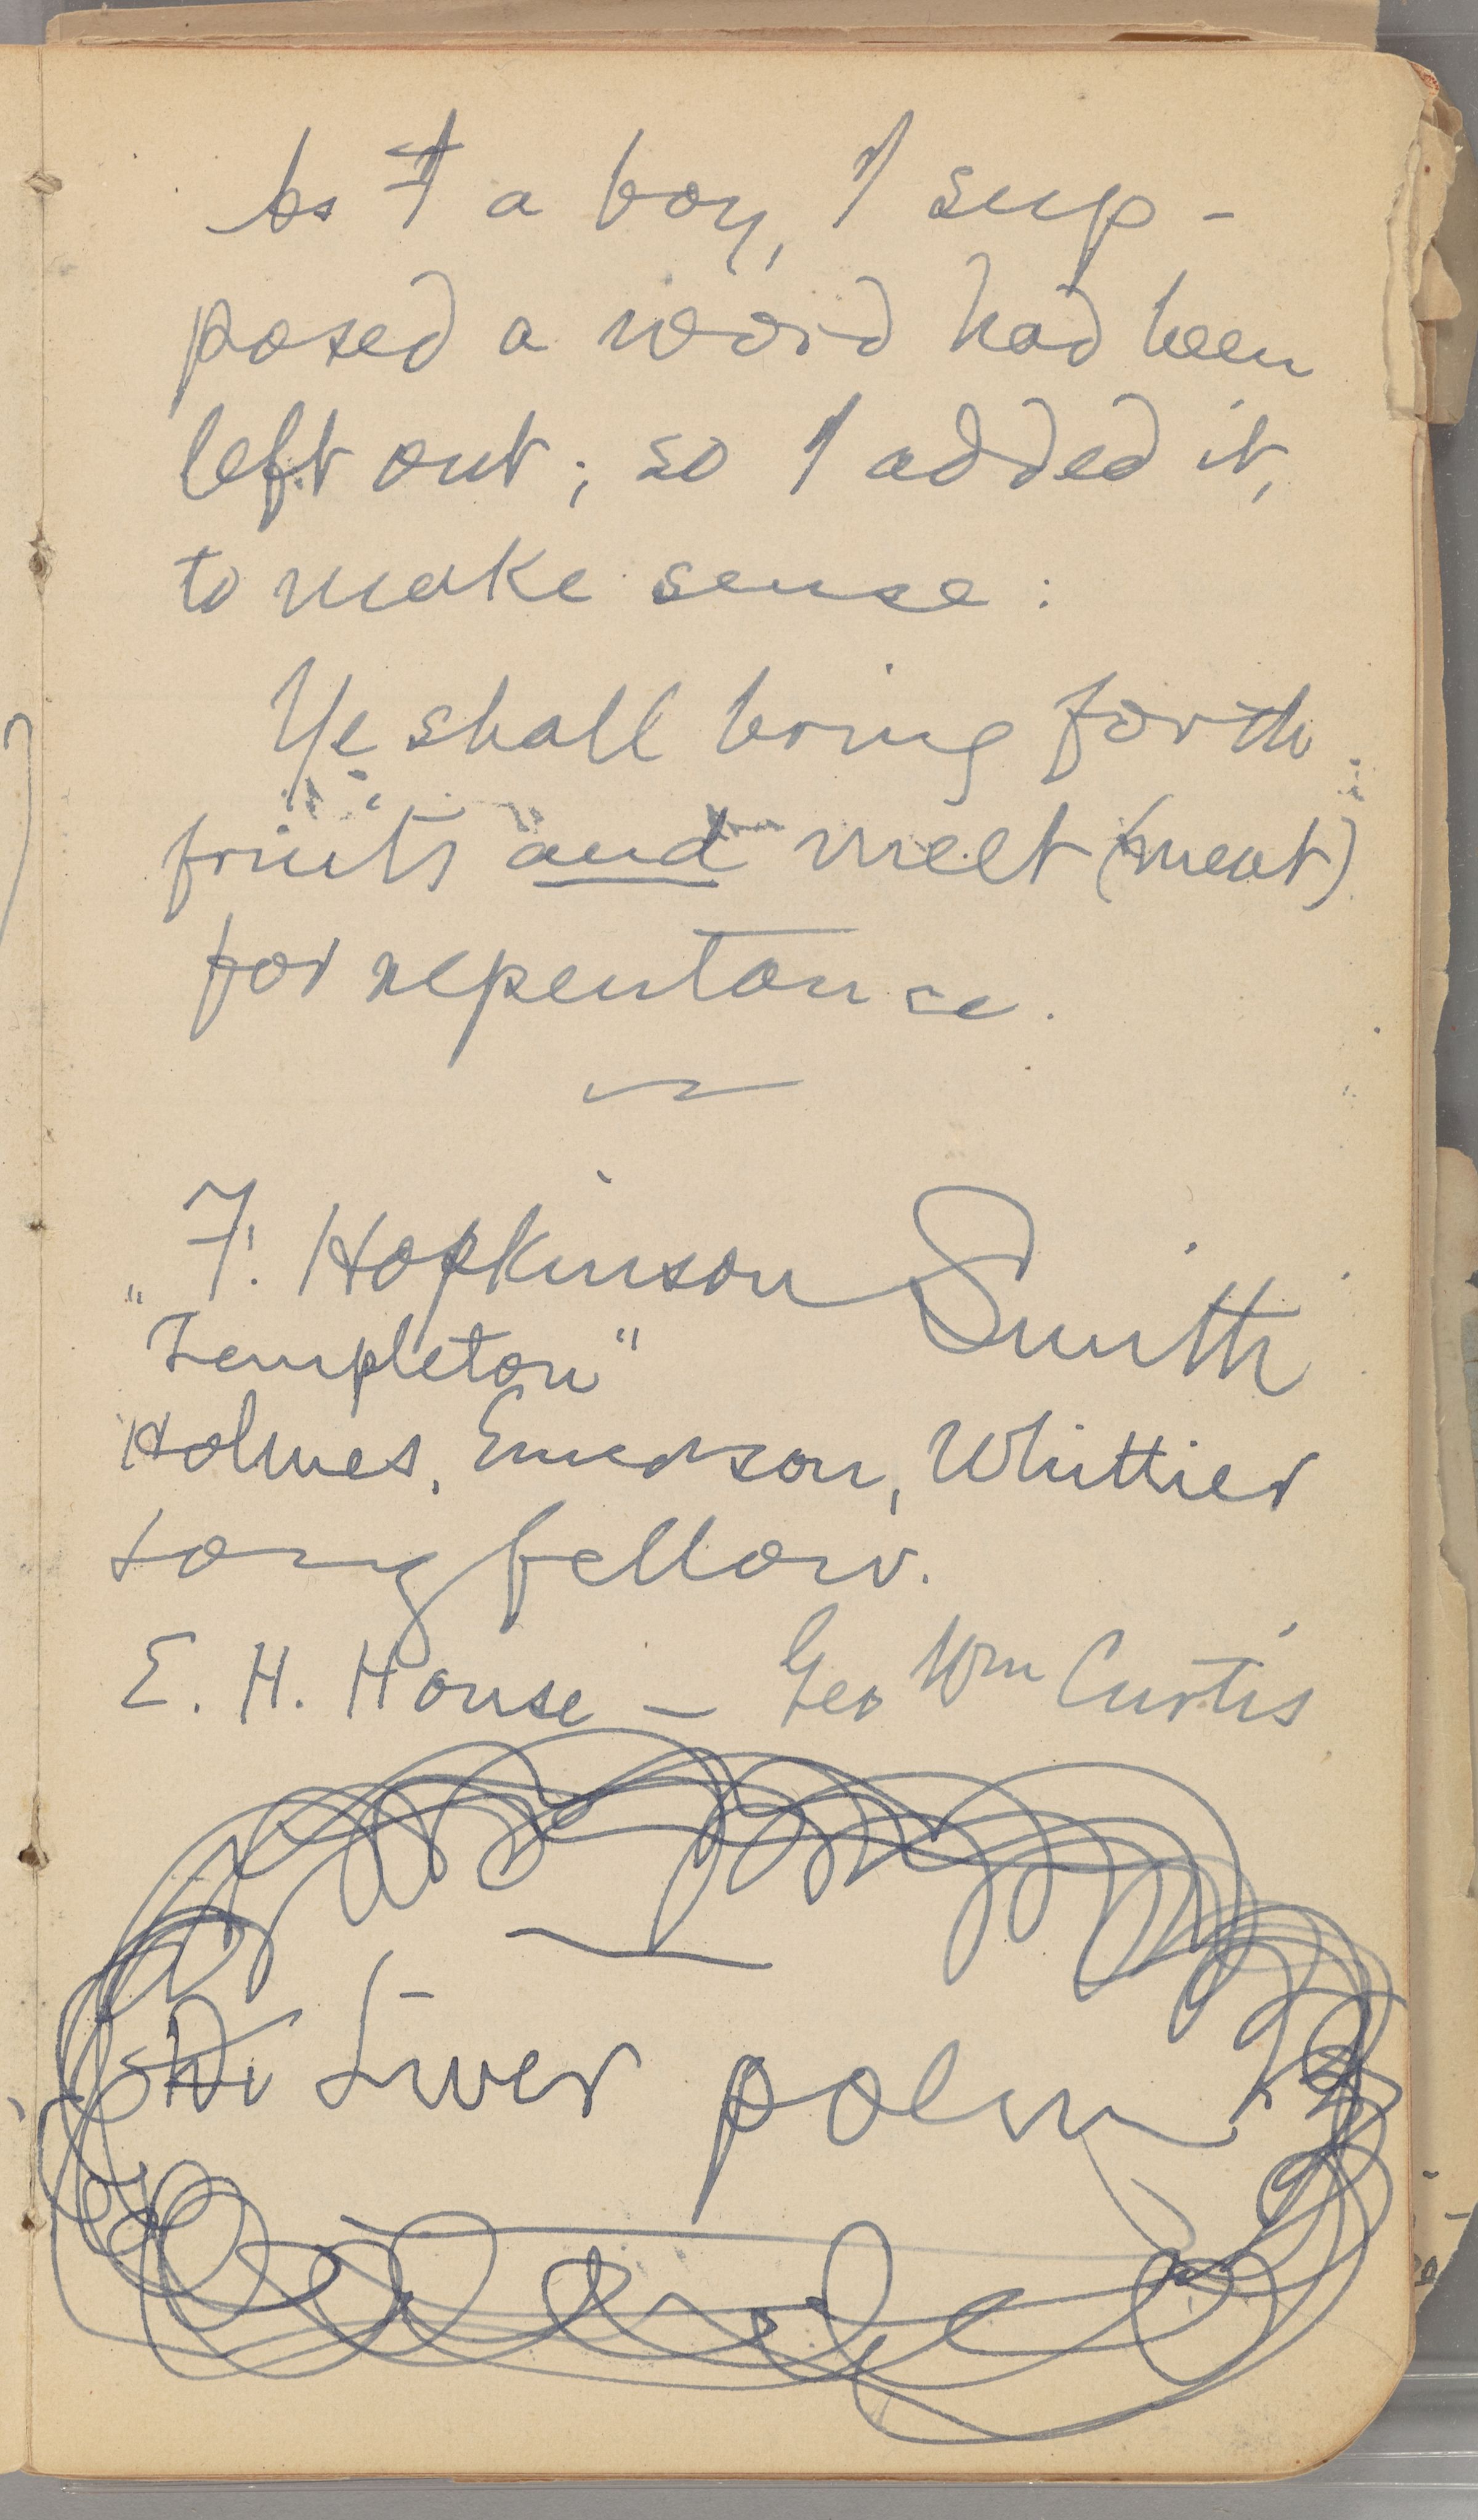 As I a boy, I sup-
posed a word had been
left out; so I added it,
to make sense:
Ye shall bring forth
fruits and meet (meat)
for repentance.
F. Hopkinson Smith
"Templeton"
Holmes, Emerson, Whittier
Longfellow.
E. H. House — Geo Wm Curtis
Liver poem